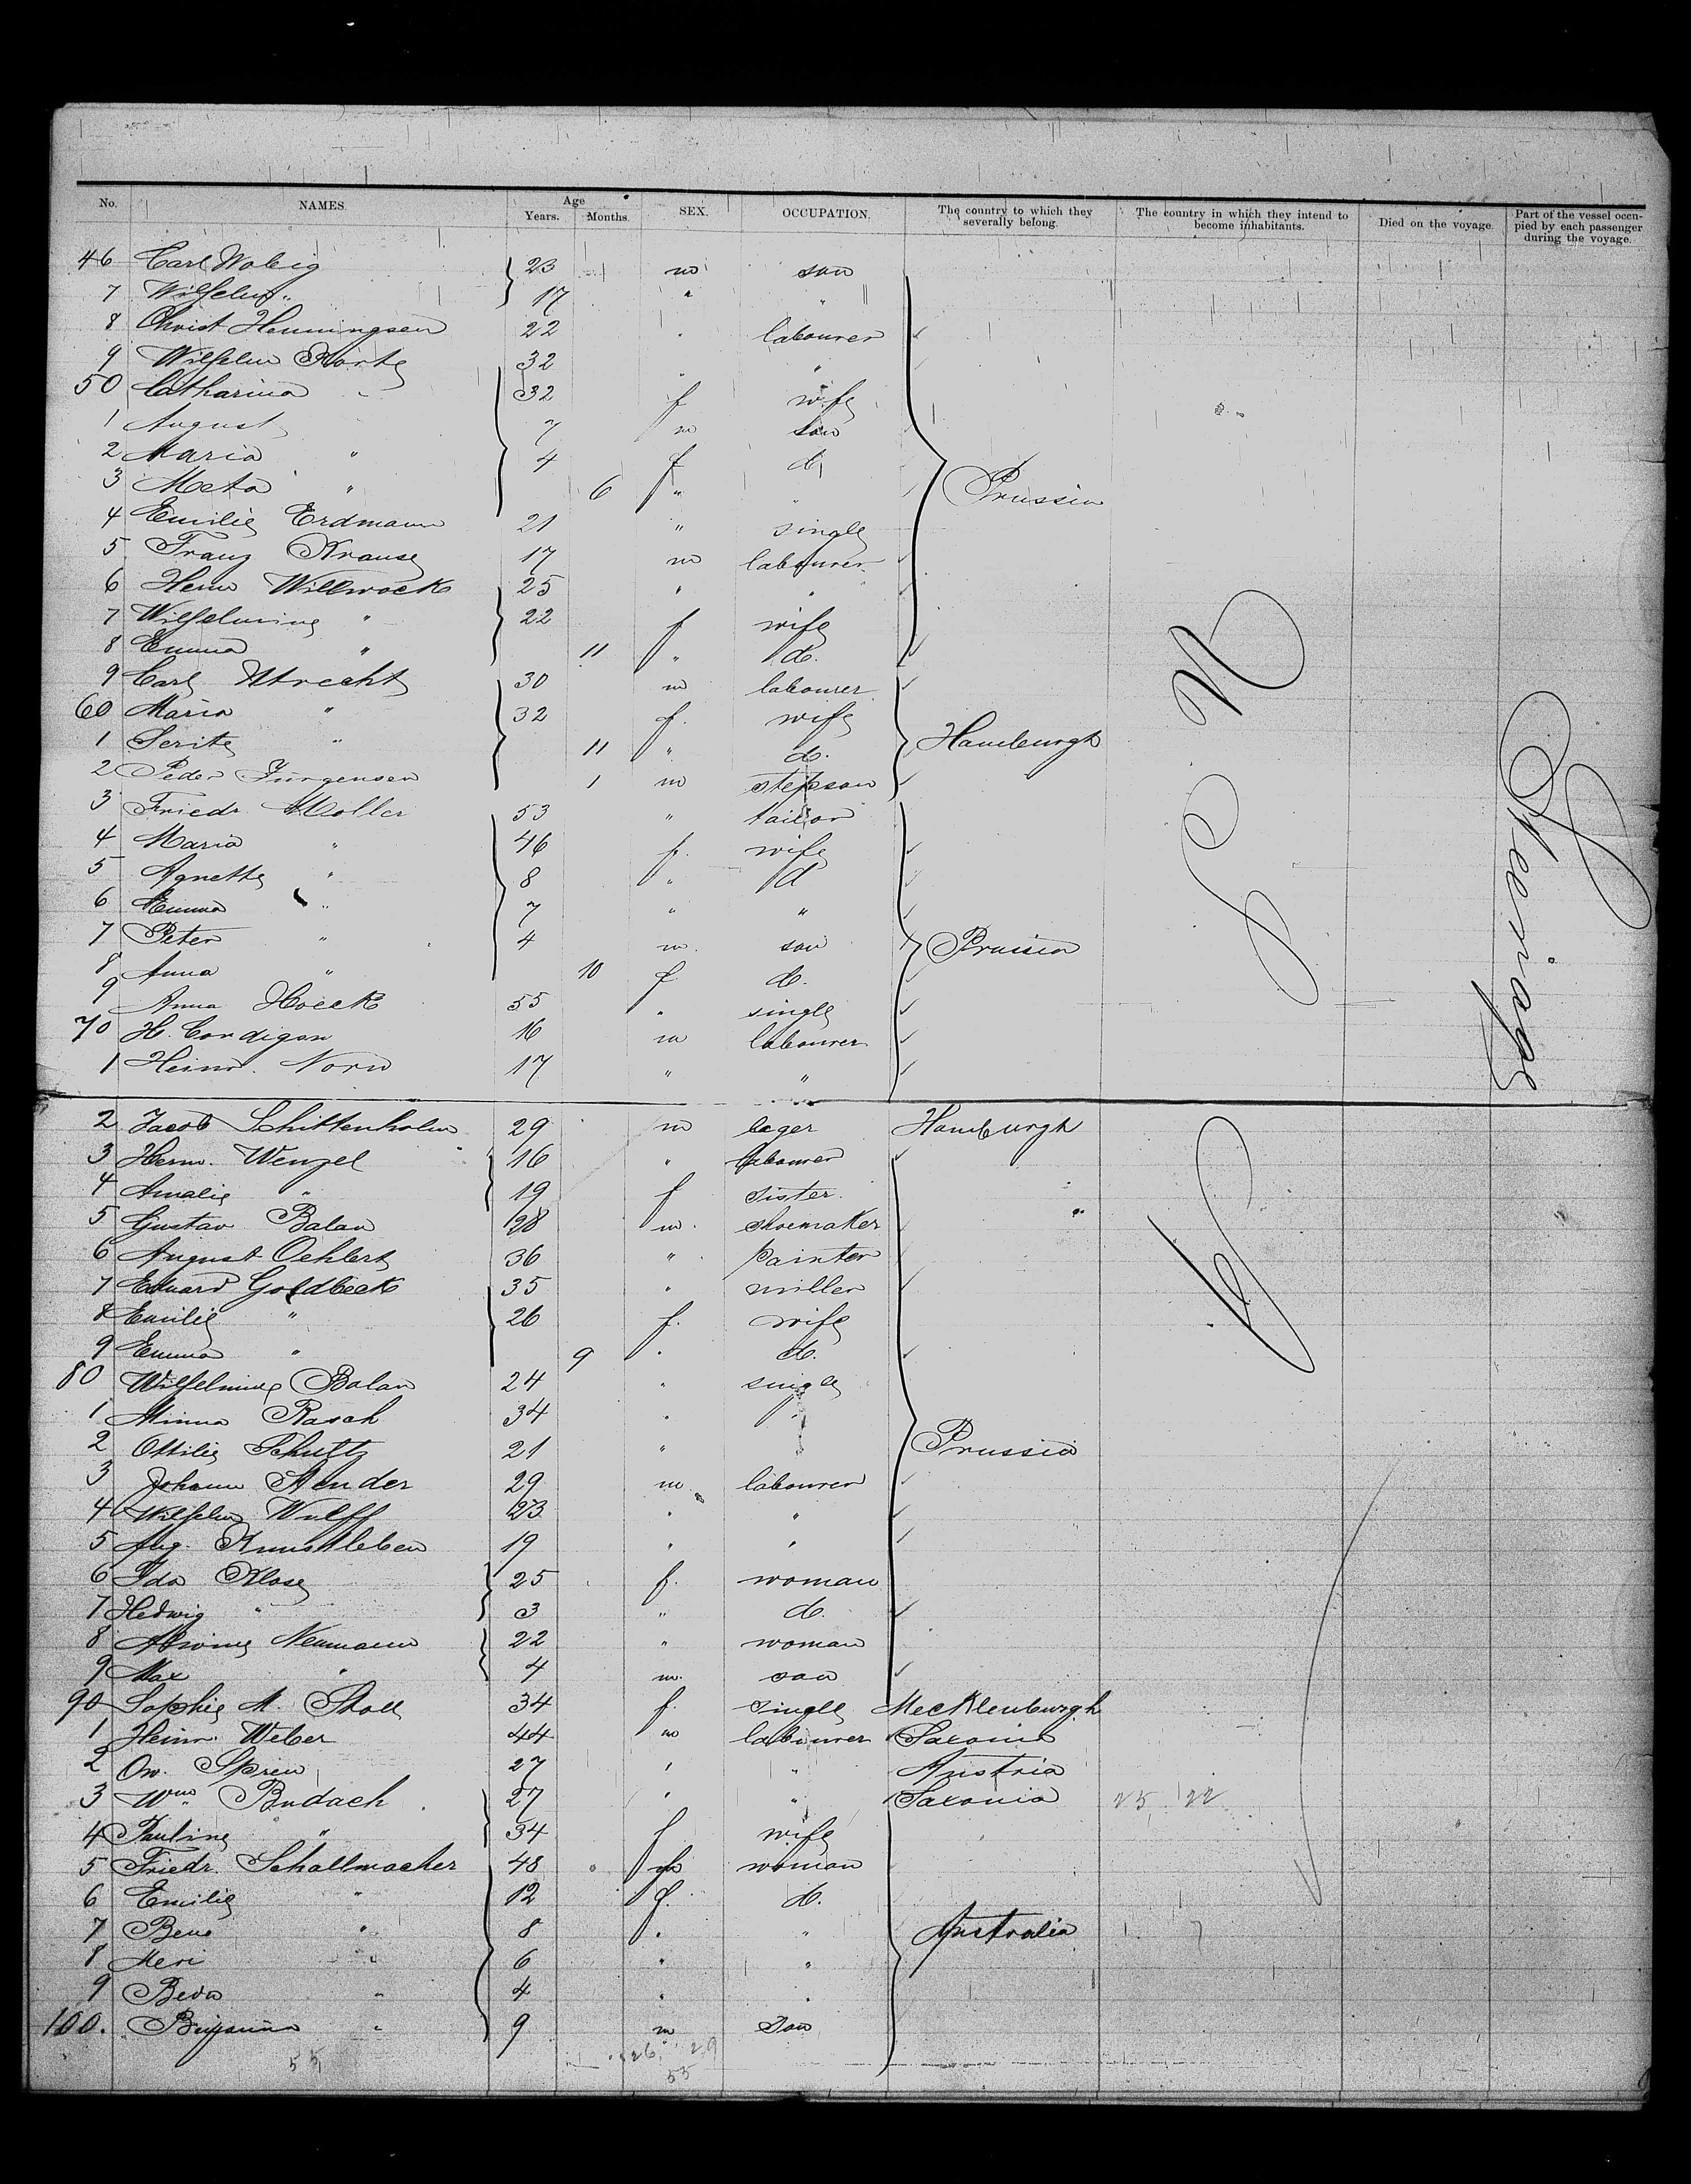 No. NAMES. Age Years. Months. SEX. OCCUPATION. The country to which they severally belong. The country in which they intend to become inhabitants. Died on the voyage. Part of the vessel occupied by each passenger during the voyage.
46 Carl Wobig 23 m son
7 Wilhelm " 17 " "
8 Christ Henningsen 22 " labourer
9 Wilhelm Korte 32 " "
50 Catharina " 32 f wife
1 August 7 m son
2 Maria " 4 f d.
3 Meta " 6 " " Prussia
4 Emilie Erdmann 21 " single
5 Franz Krause 17 m labourer
6 Herm Willwock 25 " "
7 Wilhelmine " 22 f wife
8 Emma " 11 " d.
9 Carl Utrecht 30 m labourer
60 Maria " 32 f. wife
1 " 11 " d. Hamburgh
2 Peder Jürgensen 1 m stepson
3 Friedr. Moller 53 " tailor
4 Maria " 46 f. wife
5 Agnethe " 8 " d
6 Emma " 7 " "
7 Peter " 4 m. son Prussia
8 Anna " 10 f d.
9 Anna Hoeck 55 " single
70 H. Cordigan 16 m labourer
1 Heinr. Norw 17 " "
2 Jacob Schittenholm 29 m Hamburgh
3 Herm. Wenzel 16 " labourer
4 Amalie " 19 f sister.
5 Gustav Balan 28 m. shoemaker
6 August Oehlert 36 " painter
7 Eduard Goldbeck 35 " miller
8 Emilie " 26 f. wife
9 Emma " 9 " d.
80 Wilhelmine Balan 24 " single
1 Minna Rasch 34 " "
2 Ottilie Schultz 21 " " Prussia
3 Johann Stender 29 m labourer
4 Wilhelm Wulff 23 " "
5 Aug. Kunstleben 19 " "
6 Ida Klose 25 f. woman
7 Hedwig " 3 " d.
8 Alwine Neumann 22 " woman
9 Max " 4 m. son
90 Sophie M. Stoll 34 f. single Mecklenburgh
1 Heinr. Weber 44 m labourer Saxonia
2 27 " " Austria
3 Wm. Budach 27 " " Saxonia 25 22
4 Pauline " 34 f wife
5 Friedr. Schallmacher 48 woman
6 Emilie " 12 f. d.
7 " 8 " " Australia
8 Meri " 6 " "
9 " 4 " "
100. " 9 m son
55 26 29
55
U S of A
Steerage